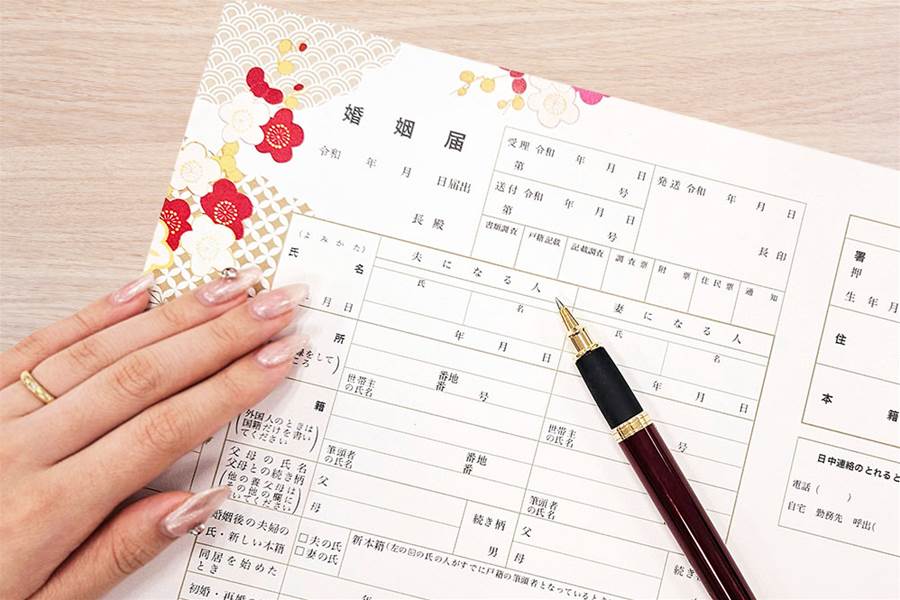 婚姻届
令和 年 月 日届出
長 殿
受理 令和 年 月 日
第 号
送付 令和 年 月 日
第 号
発送 令和 年 月 日
長 印
書類調査 戸籍記載 記載調査 調査票 附票 住民票 通知
(よみかた)
氏 名
夫になる人
妻になる人
氏 名
氏 名
月 日
年 月 日
年 月 日
所
をして
ころ
番地
番 号
世帯主
の氏名
世帯主
の氏名
号
籍
外国人のときは
国籍だけを書い
てください
筆頭者
の氏名
番地
番
筆頭者
の氏名
父母の氏名
父母との続き柄
他の養父母は
その他の欄に
いてください
父
母
続き柄
男
父
母
続き柄
婚姻後の夫婦の
氏・新しい本籍
□夫の氏
□妻の氏
新本籍(左の☑の氏の人がすでに戸籍の筆頭者となっているとき
同居を始めた
とき
年 月
初婚・再婚
署
押
生 年 月
住
本 籍
日中連絡のとれると
電話( )
自宅 勤務先 呼出(